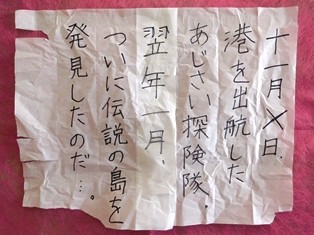 十一月×日、
港を出航した
あじさい探険隊。
翌年一月、
ついに伝説の島を
発見したのだ…。